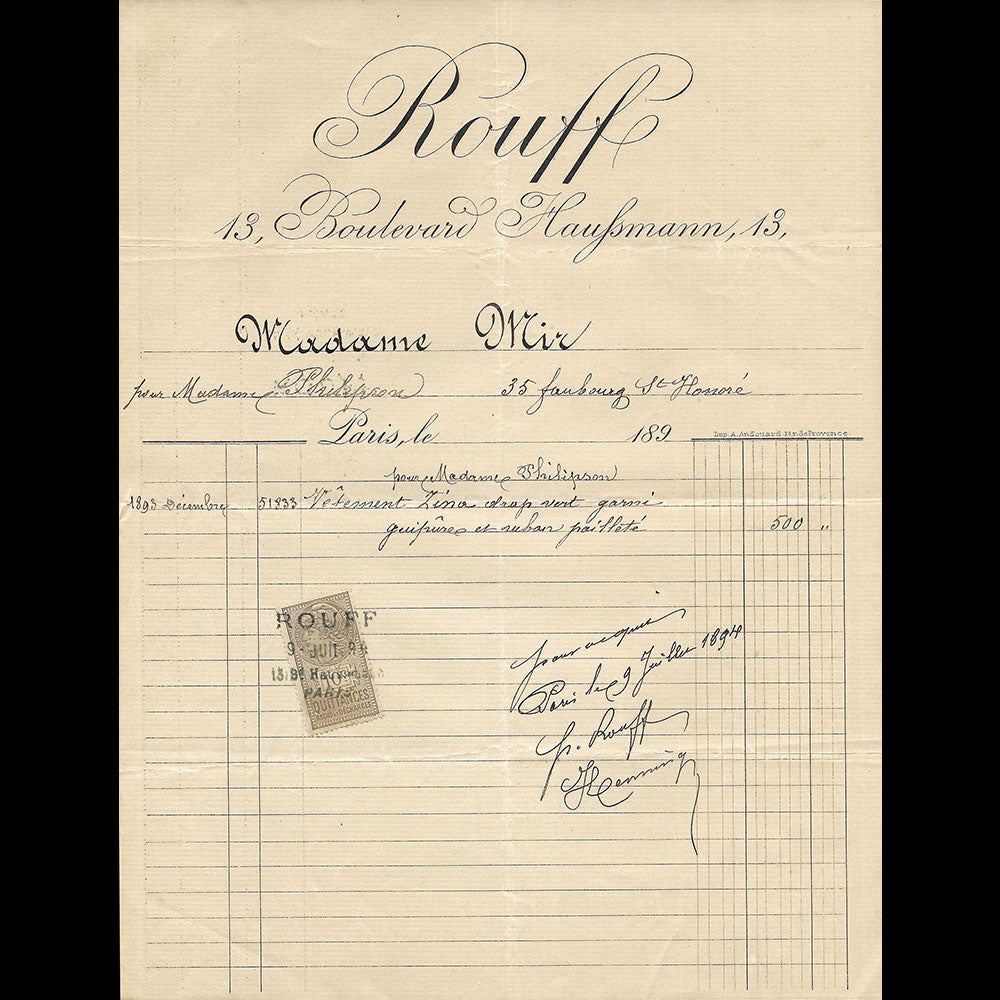 Rouff
13, Boulevard Haussmann, 13,
Madame Mir
pour Madame Philipson 35 faubourg St Honoré
Paris, le 189
Imp. A. Andouard de Provence
pour Madame Philipson
1893 Décembre 51833 Vêtement Zina drap vert garni
guipûre et ruban pailleté 500 "
ROUFF
9 - JUIL 94
13, Bd Haussmann
PARIS
10
QUITTANCES
REÇUS & DÉCHARGES
pour acquit
Paris le 9 Juillet 1894
p. Rouff
Henning